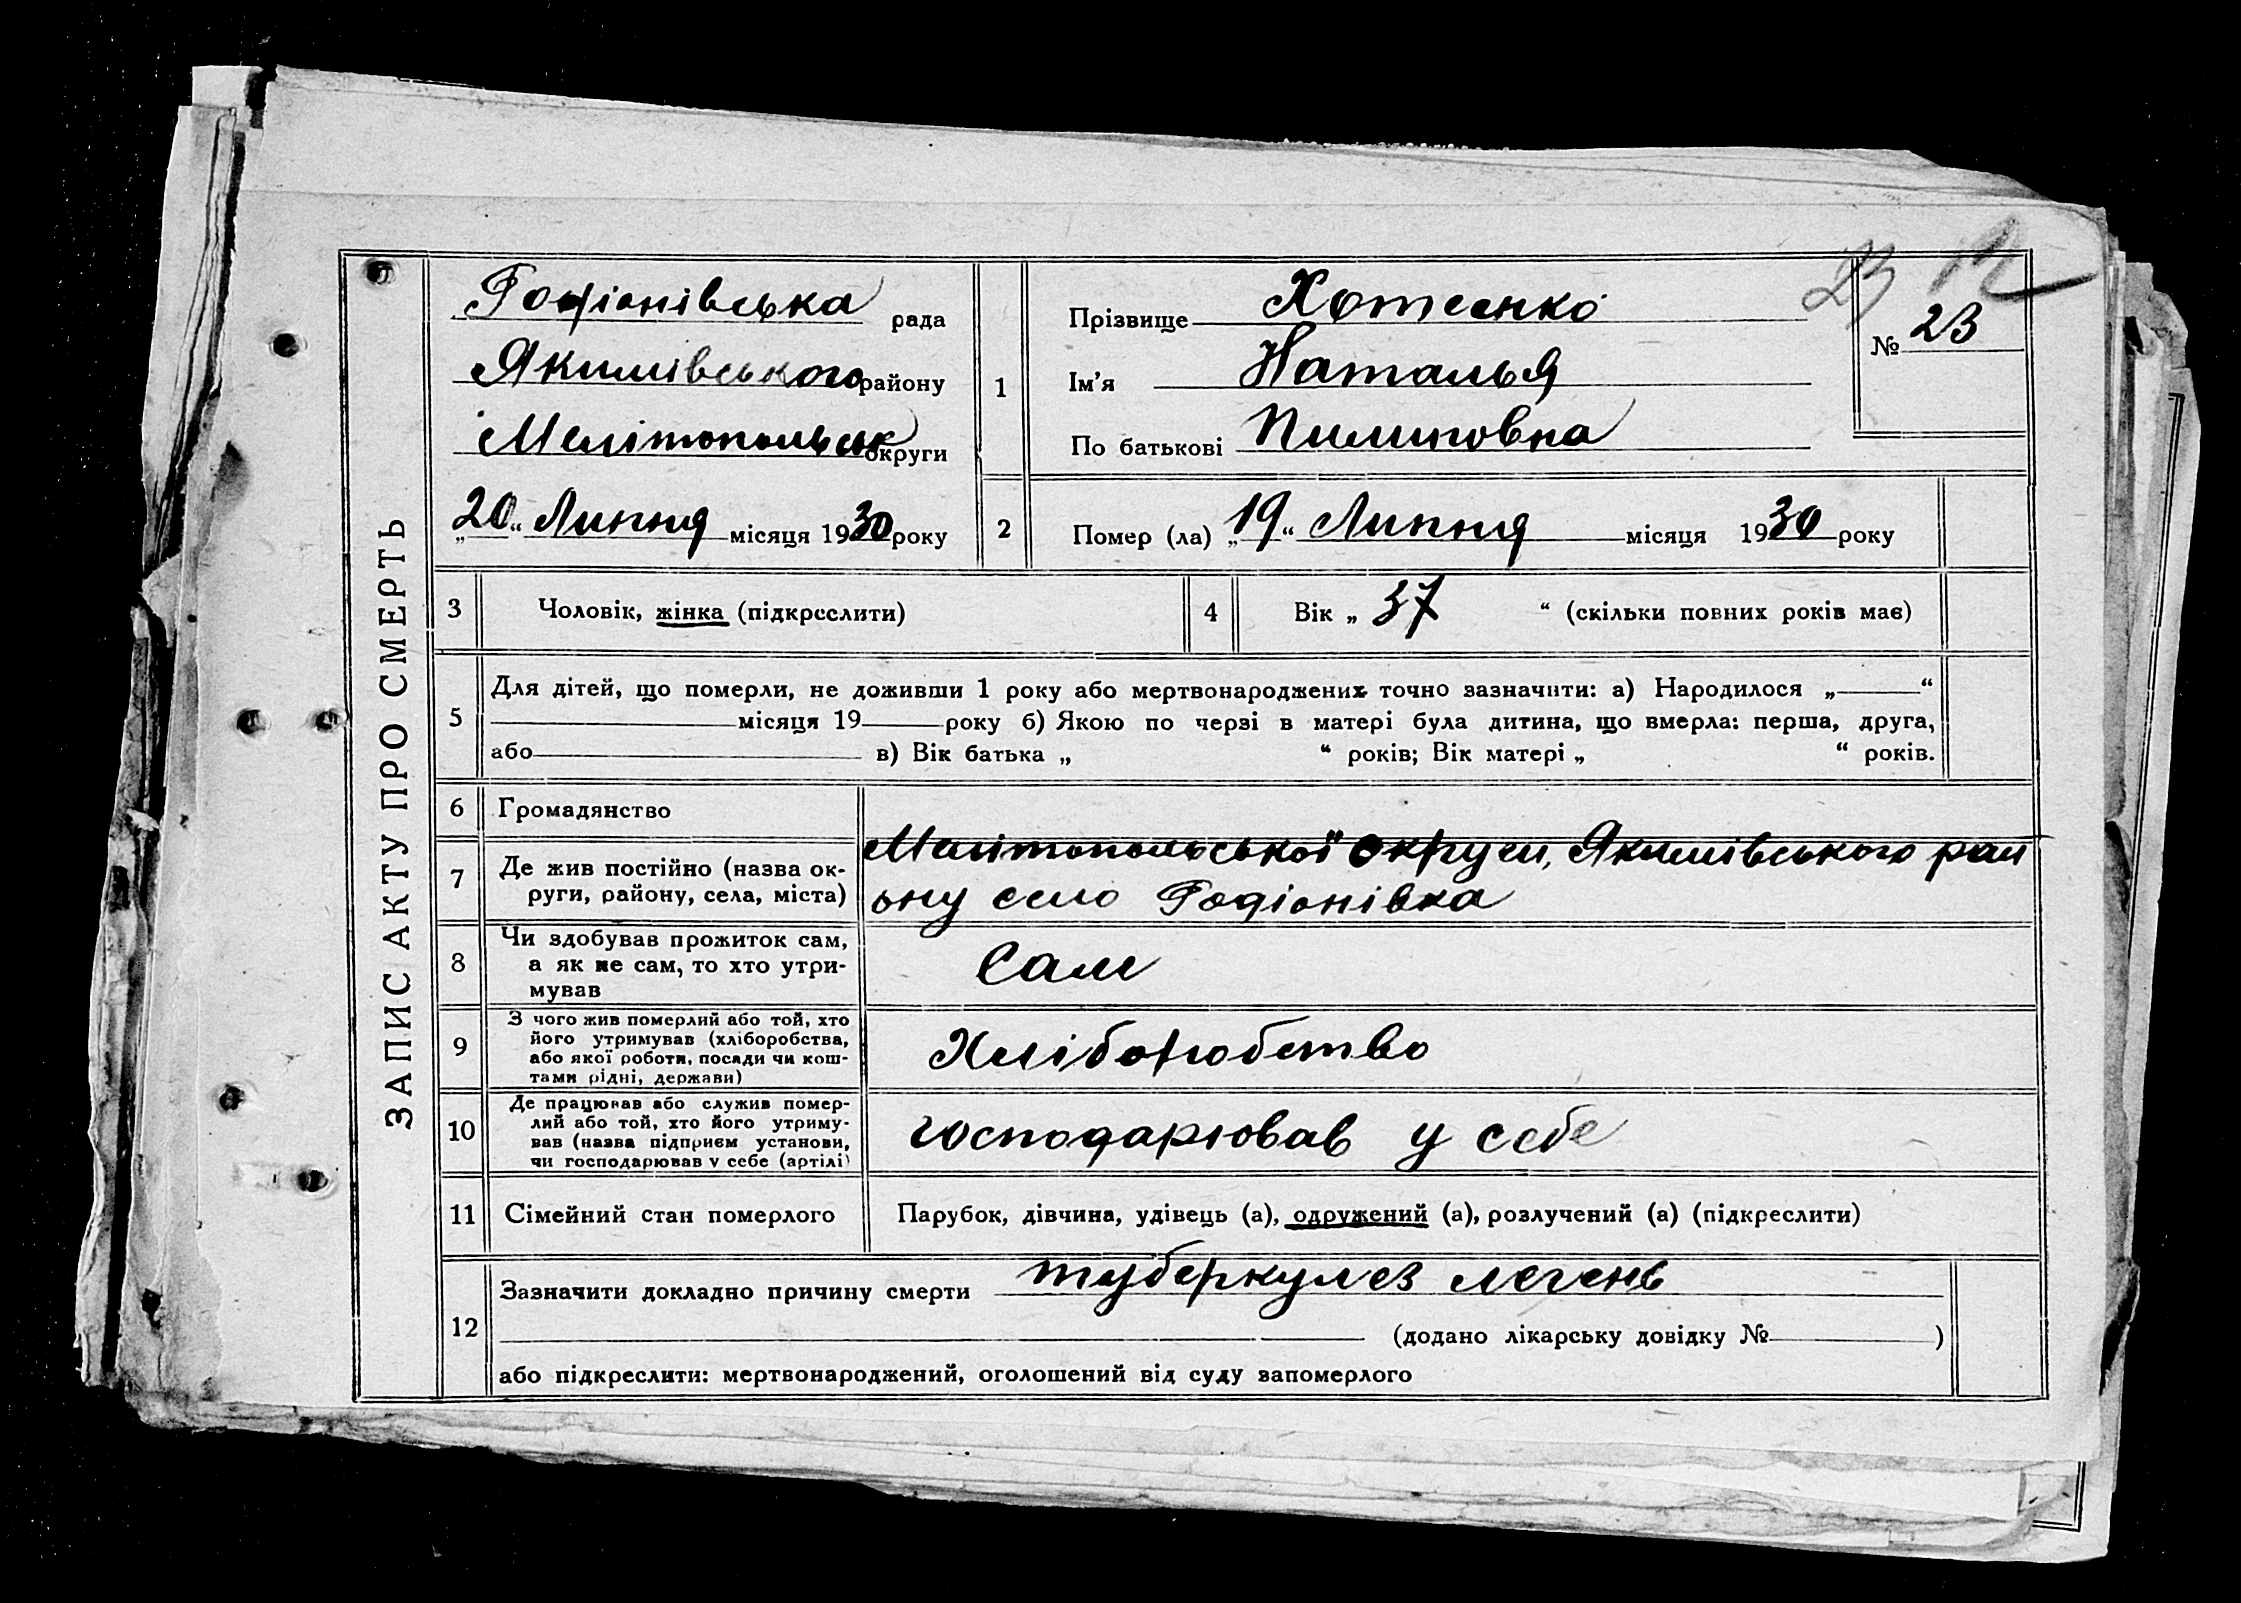 ЗАПИС АКТУ ПРО СМЕРТЬ
23 12
Родіонівська рада
Якимівського району
Мелітопольськ округи
„20“ Липня місяця 1930 року
1
Прізвище Хотеенко
Ім’я Наталья
По батькові Пилиповна
№ 23
2
Помер (ла) „19“ Липня місяця 1930 року
3 Чоловік, жінка (підкреслити)
4 Вік „ 37 “ (скільки повних років має)
5
Для дітей, що померли, не доживши 1 року або мертвонароджених точно зазначити: а) Народилося „ “
місяця 19 року б) Якою по черзі в матері була дитина, що вмерла: перша, друга,
або в) Вік батька „ “ років; Вік матері „ “ років.
6 Громадянство
7 Де жив постійно (назва ок-
руги, району, села, міста)
Мелітопольської округи, Якимівського рай
ону село Родіонівка
8 Чи здобував прожиток сам,
а як не сам, то хто утри-
мував
Сам
9 З чого жив померлий або той, хто
його утримував (хліборобства,
або якої роботи, посади чи кош-
тами рідні, держави)
Хліборобство
10 Де працював або служив помер-
лий або той, хто його утриму-
вав (назва підприєм установи,
чи господарював у себе (артілі)
господарював у себе
11 Сімейний стан померлого
Парубок, дівчина, удівець (а), одружений (а), розлучений (а) (підкреслити)
12
Зазначити докладно причину смерти туберкулез легень
(додано лікарську довідку № )
або підкреслити: мертвонароджений, оголошений від суду запомерлого